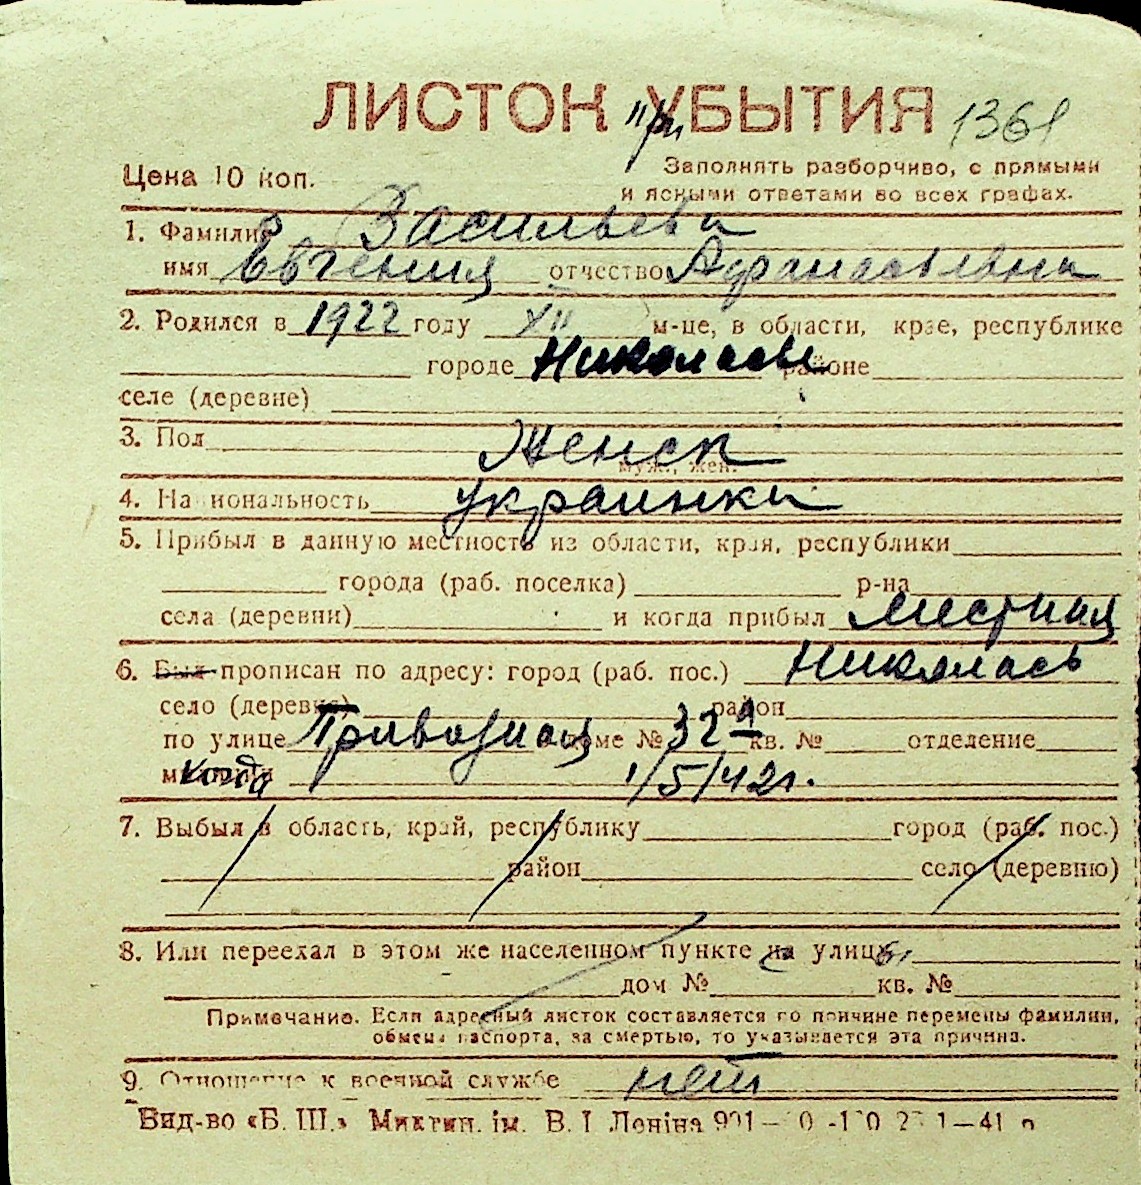 ЛИСТОК "при" УБЫТИЯ 1361
Цена 10 коп.
Заполнять разборчиво, с прямыми
и ясными ответами во всех графах.
1. Фамилия Васильева
имя Евгения отчество Афанасьевна
2. Родился в 1922 году XII м-це, в области, крае, республике
городе Николаеве районе
селе (деревне)
3. Пол Женск
муж., жен.
4. Национальность украинка
5. Прибыл в данную местность из области, края, республики
города (раб. поселка) р-на
села (деревни) и когда прибыл местная
6. Был прописан по адресу: город (раб. пос.) Николаев
село (деревне) район
по улице Привозная доме № 32 А кв. № отделение
милиции когда 1/5/42г.
7. Выбыл в область, край, республику город (раб. пос.)
район село (деревню)
8. Или переехал в этом же населенном пункте на улицу
дом № кв. №
Примечание. Если адресный листок составляется по причине перемены фамилии,
обмена паспорта, за смертью, то указывается эта причина.
9. Отношение к военной службе нет
Вид-во «Б. Ш.» Миктип. ім. В. І Леніна